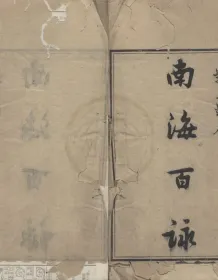 南海百詠